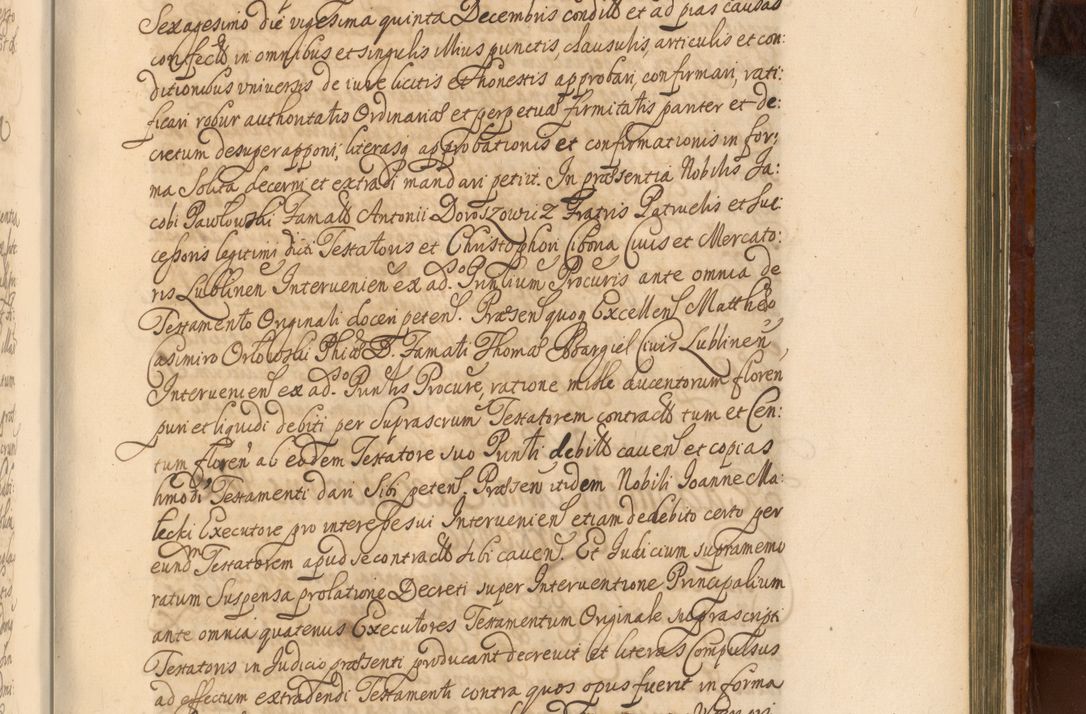 Sexagesimo die vigesima quinta Decembris condit et ad pias causas
confect in omnibus et singulis illius punctis, clausulis, articulis et con:
ditionibus universis de iure licitis et honestis approbari, confirmari, rati:
ficari robur authoritatis Ordinariae et perpetuae firmitatis pariter et de:
cretum desuper apponi, literasq approbationis et confirmationis in for:
ma Solita decerni et extradi mandari petiit. In praesentia Nobilis Ja:
cobi Pawłowski Famati Antonii Doroszowiz Fratris Patruelis et Suc:
cessoris legitimi dicti Testatoris et Christophori Cibona Civis et Mercato:
ris Lublinen Intervenien ex ad.so Punlium Procuris ante omnia de
Testamento Originali doceri peten. Praesen quoq Excellen Matthaeo
Casimiro Orłowski Phiae D. Famati Thomae Bargiel Civis Lublinen,
Intervenien ex ad.so Puntis Procure, ratione mille ducentorum floren
puri et liquidi debiti per Suprascrum Testatorem contract tum et Cen:
tum floren ab eodem Testatore suo Punti debit caven et copias
hmodi Testamenti dari Sibi peten. Praesen itidem Nobili Joanne Ma:
łecki Executore pro interesse sui Intervenien etiam de debito certo per
eundm Testatorem apud se contract sibi caven. Et Judicium supramemo
ratum Suspensa prolatione Decreti super Interventione Principalium
ante omnia quatenus Executores Testamentum Originale suprascripti
Testatoris in Judicio praesenti producant decrevit et literas Compulsus
ad effectum extradendi Testamenti contra quos opus fuerit in forma